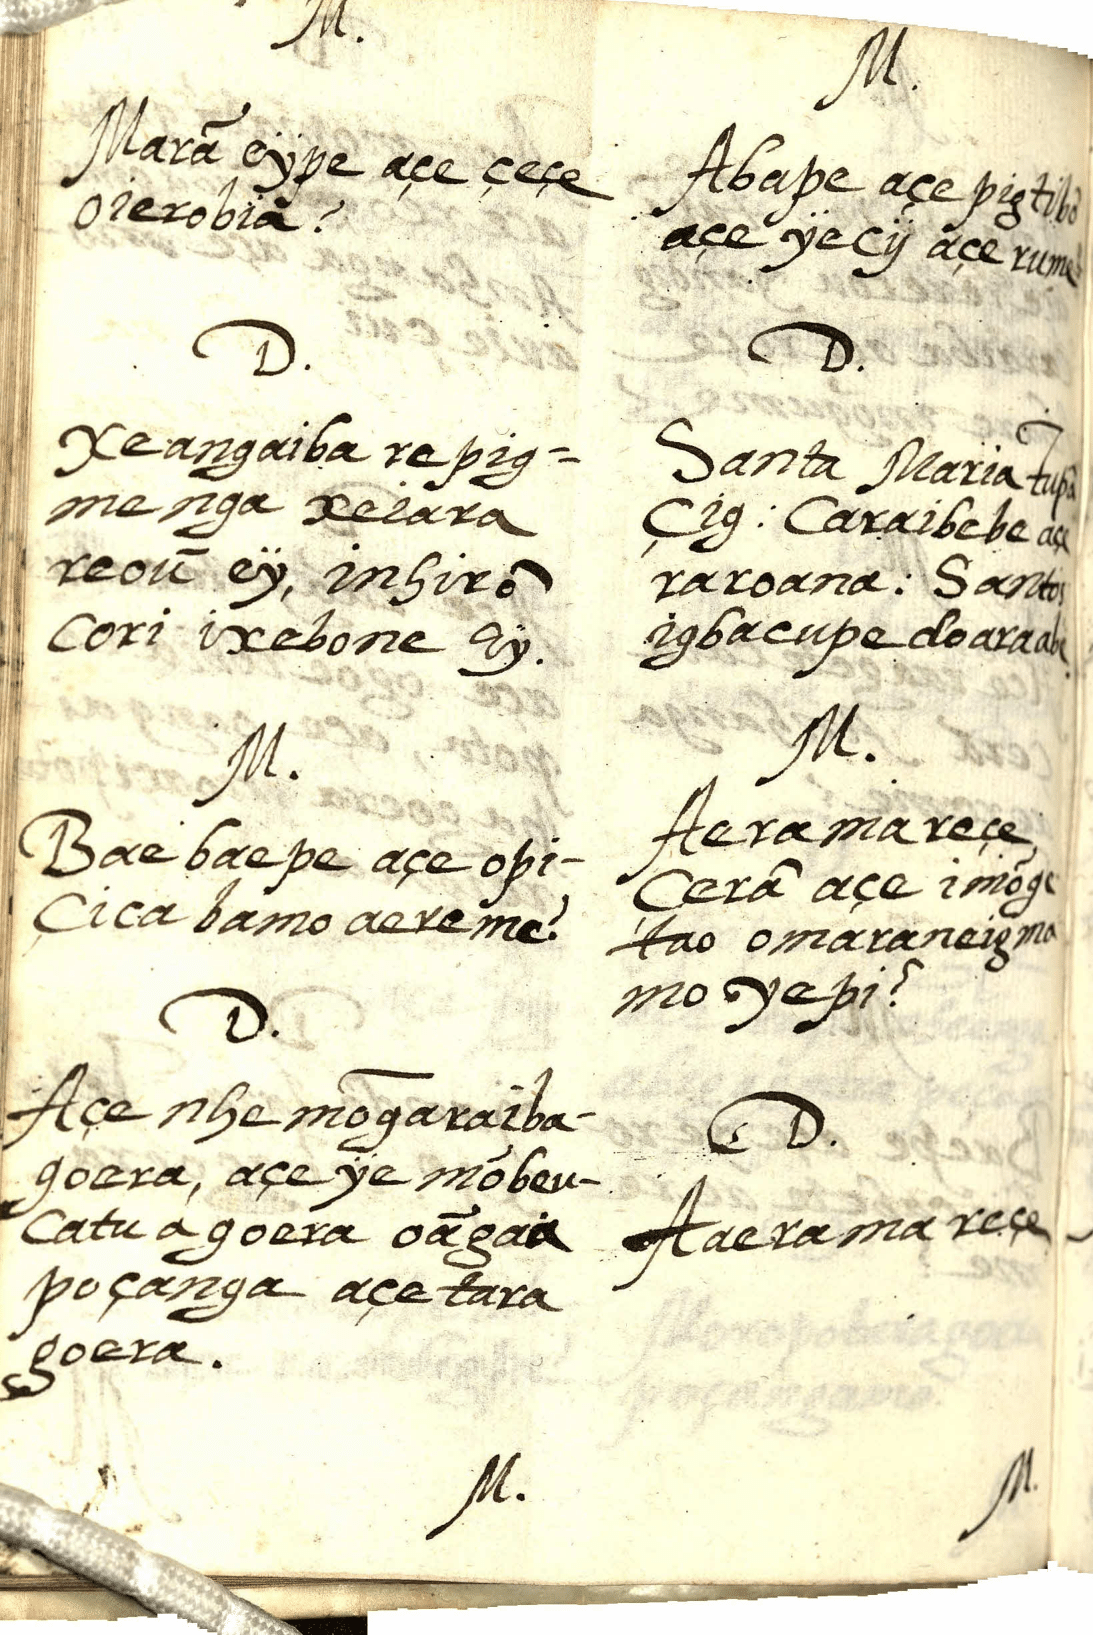 M.
Marã eÿpe açe çeçe
oierobiã?
D.
Xe angaiba re pig=
menga xeiara
reoũ eÿ, inhirõ
Cori ixebone eÿ.
M.
Bae baepe açe opi-
Çica bamo aereme?
D.
Açe nhe mõgaraiba-
goera, açe ÿe mõbeu-
Catu a goera oãgaia
poçanga açe tara
goera.
M.
M.
Abape açe pigtibõ
açe ÿecÿ açe rume
D.
Santa Maria Tupã
Çig: Caraibebe açe
raroana: Santos
igbacupe doara abe.
M.
Aeramareçe,
Çerã açe imõge
tao omaraneigma
mo yepi?
D.
Aaeramareçe
M.